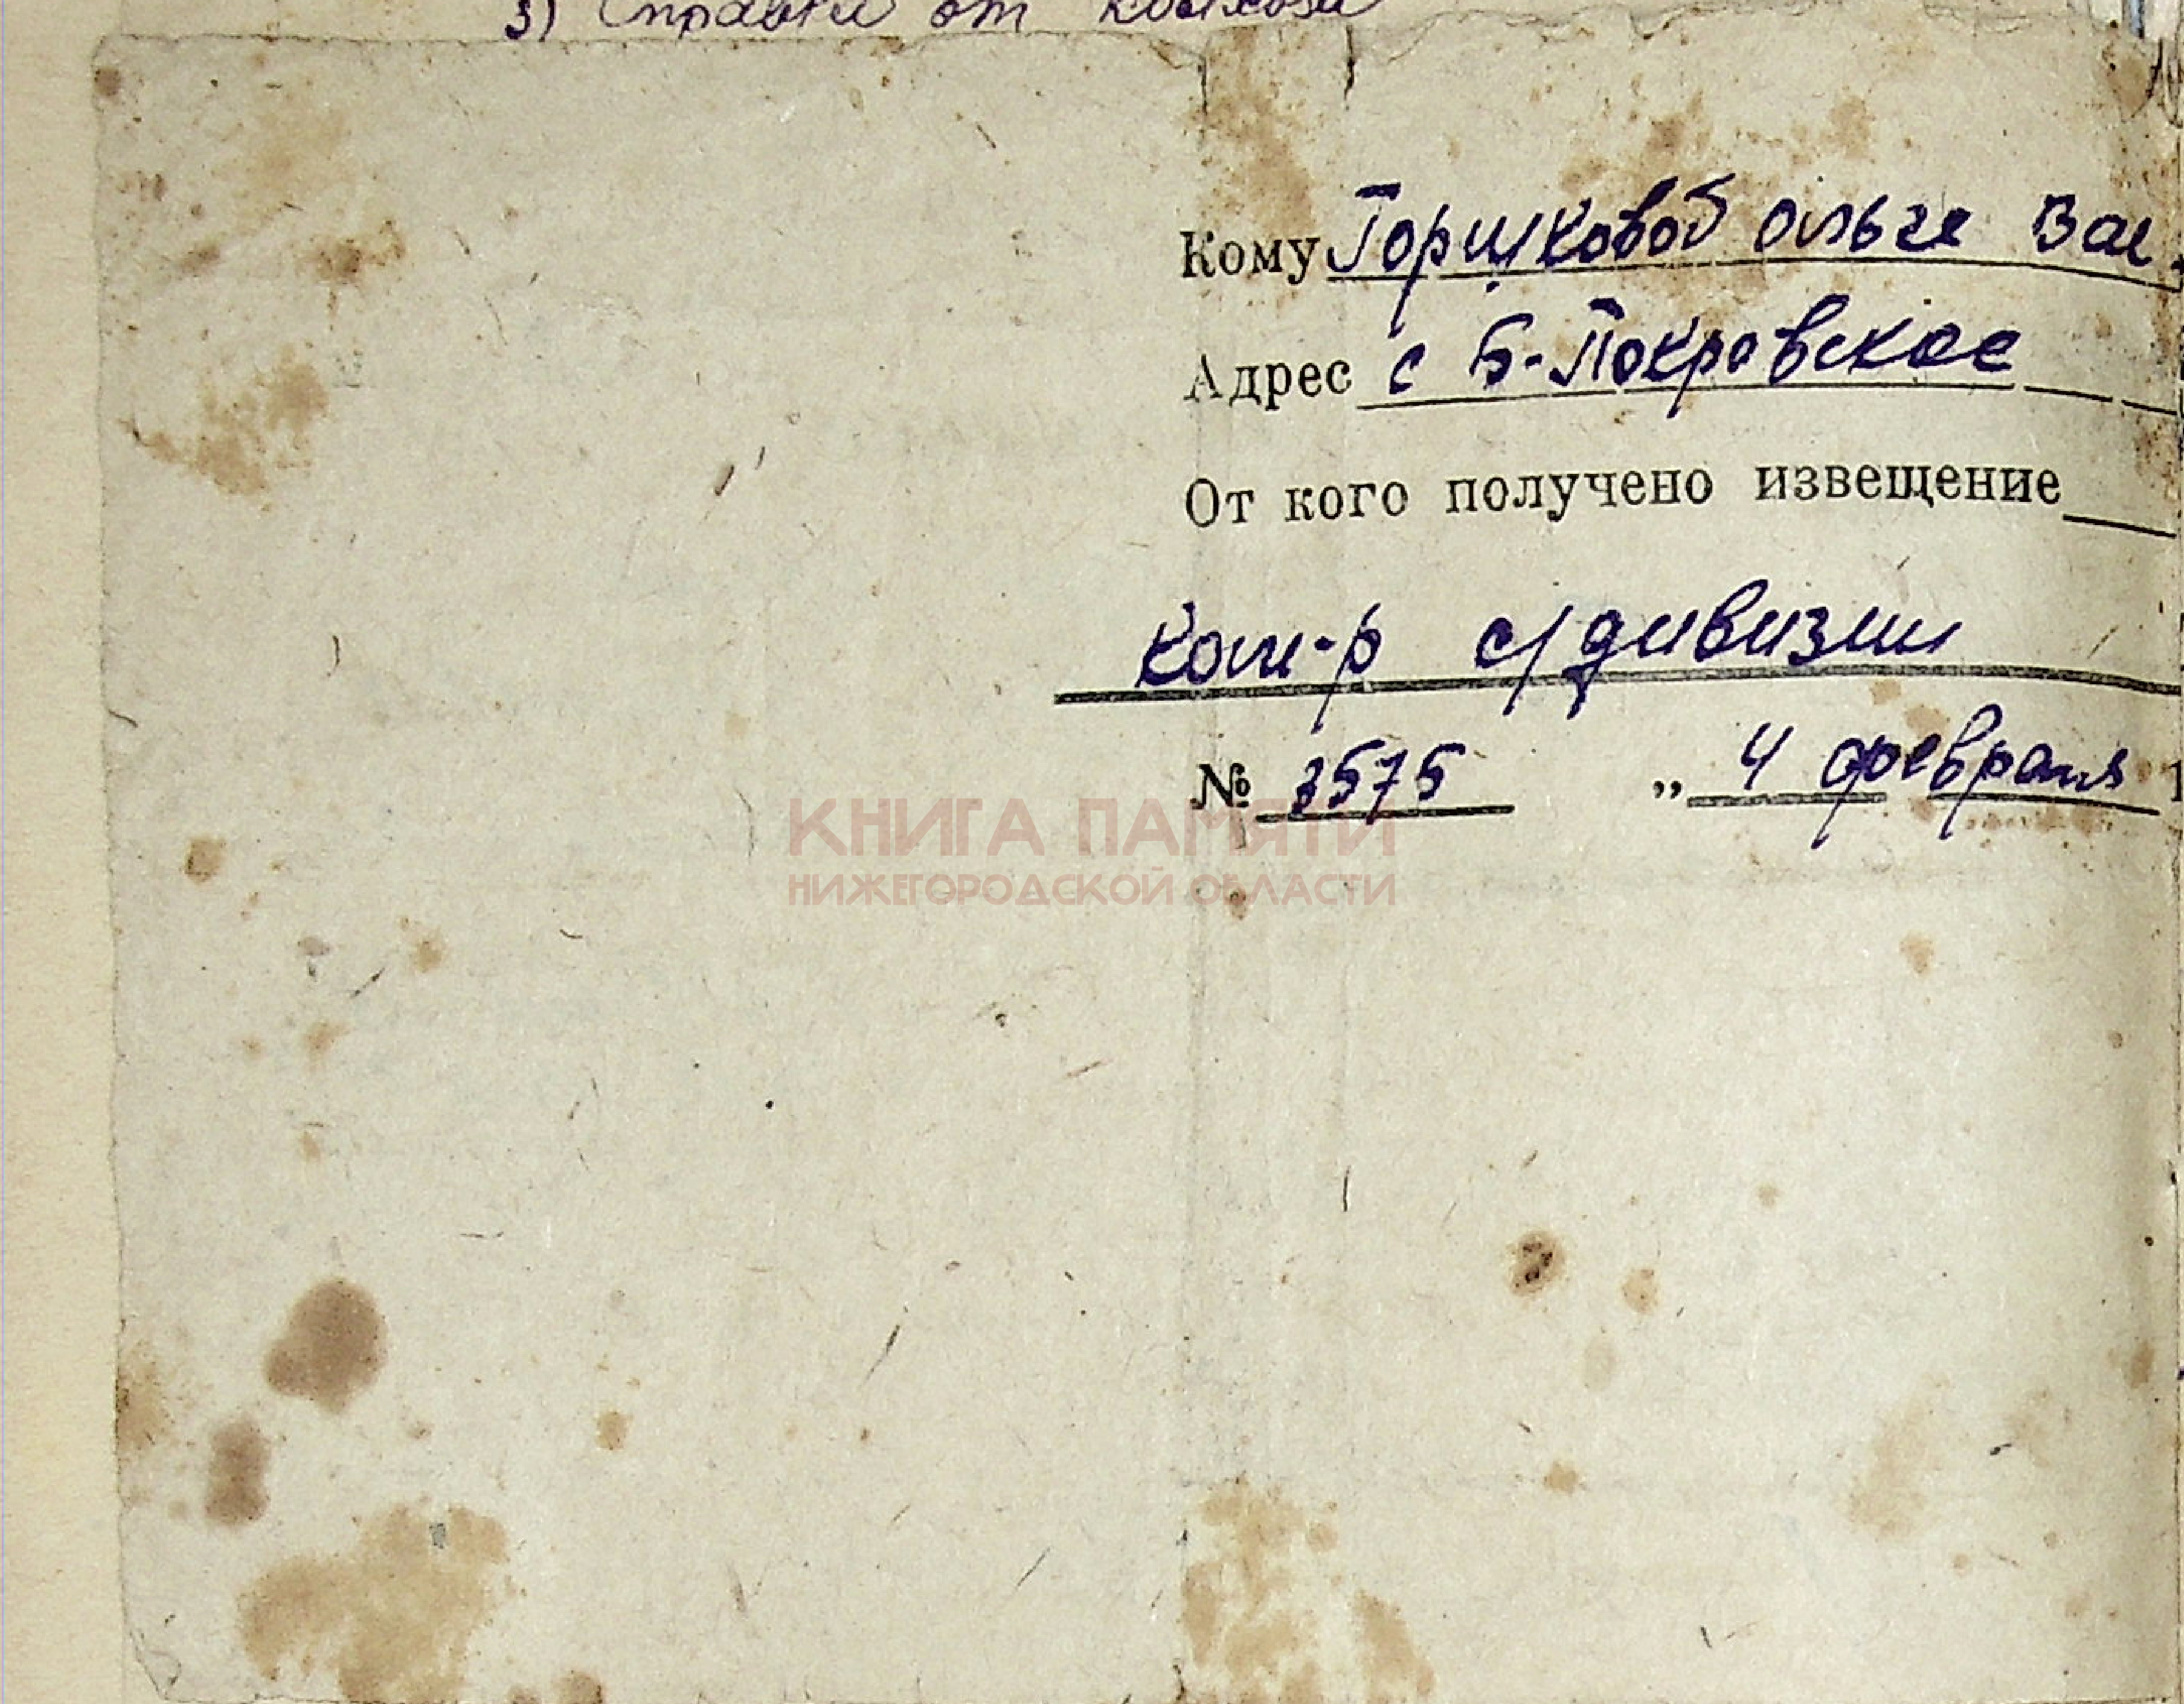 3) Справки от колхоза
Кому Горшковой Ольге Вас.
Адрес с Б-Покровское
От кого получено извещение
Ком-р с/дивизии
№ 3575 „ 4 февраля 1
КНИГА ПАМЯТИ
НИЖЕГОРОДСКОЙ ОБЛАСТИ